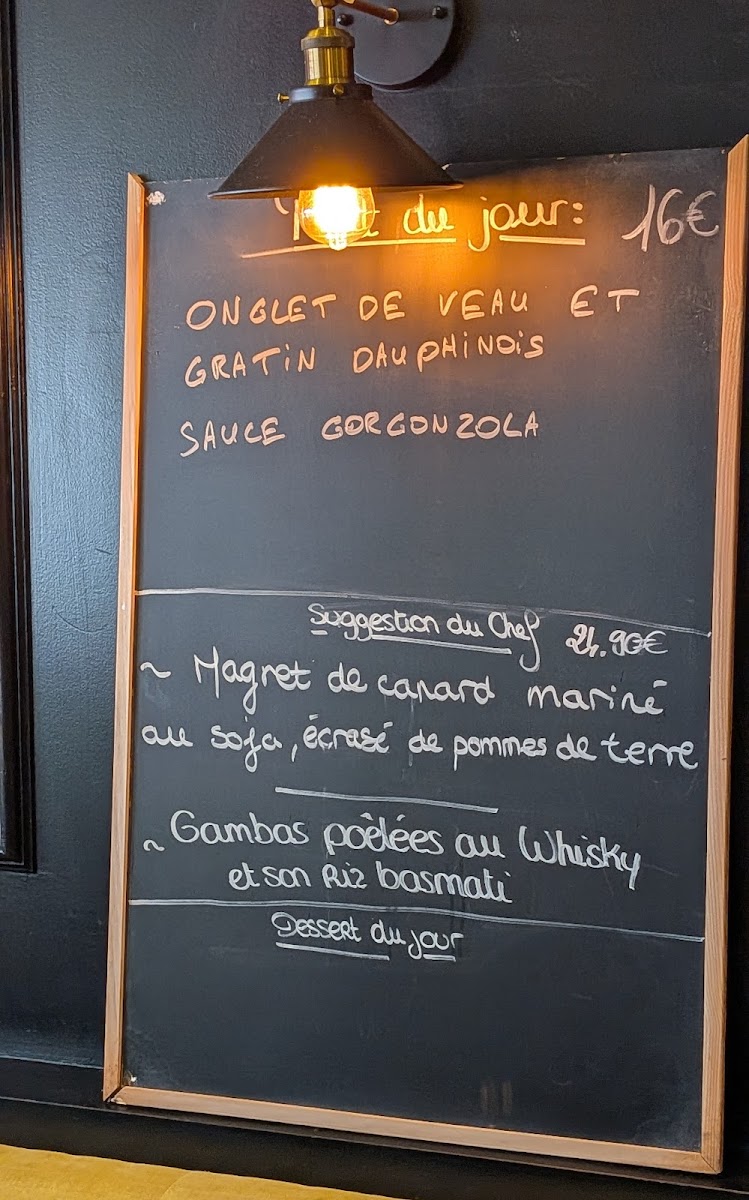 du jour: 16€
ONGLET DE VEAU ET
GRATIN DAUPHINOIS
SAUCE GORGONZOLA
Suggestion du Chef 24.90€
~ Magret de canard mariné
au soja, écrasé de pommes de terre
~ Gambas poêlées au Whisky
et son Riz basmati
Dessert du jour